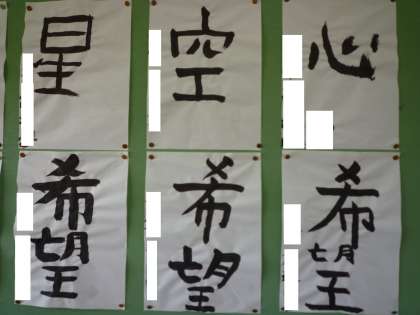 星
空
心
希望
希望
希望